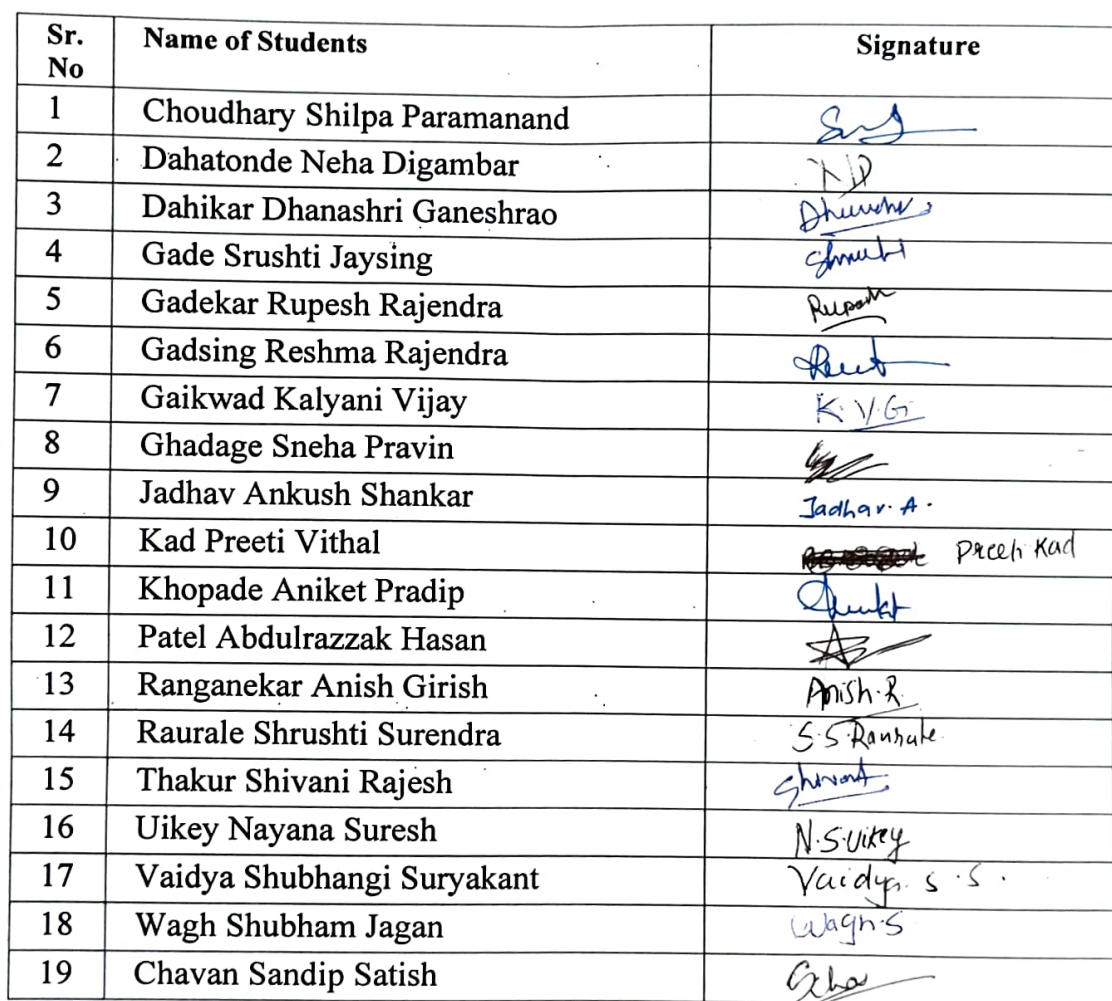 Sr. No Name of Students Signature
1 Choudhary Shilpa Paramanand
2 Dahatonde Neha Digambar
3 Dahikar Dhanashri Ganeshrao
4 Gade Srushti Jaysing
5 Gadekar Rupesh Rajendra Rupesh
6 Gadsing Reshma Rajendra
7 Gaikwad Kalyani Vijay K.V.G
8 Ghadage Sneha Pravin
9 Jadhav Ankush Shankar Jadhav. A.
10 Kad Preeti Vithal Preeti Kad
11 Khopade Aniket Pradip
12 Patel Abdulrazzak Hasan
13 Ranganekar Anish Girish Anish.R.
14 Raurale Shrushti Surendra S.S.Raurale.
15 Thakur Shivani Rajesh
16 Uikey Nayana Suresh N.S.Uikey
17 Vaidya Shubhangi Suryakant Vaidya. S.S.
18 Wagh Shubham Jagan Wagh.S
19 Chavan Sandip Satish